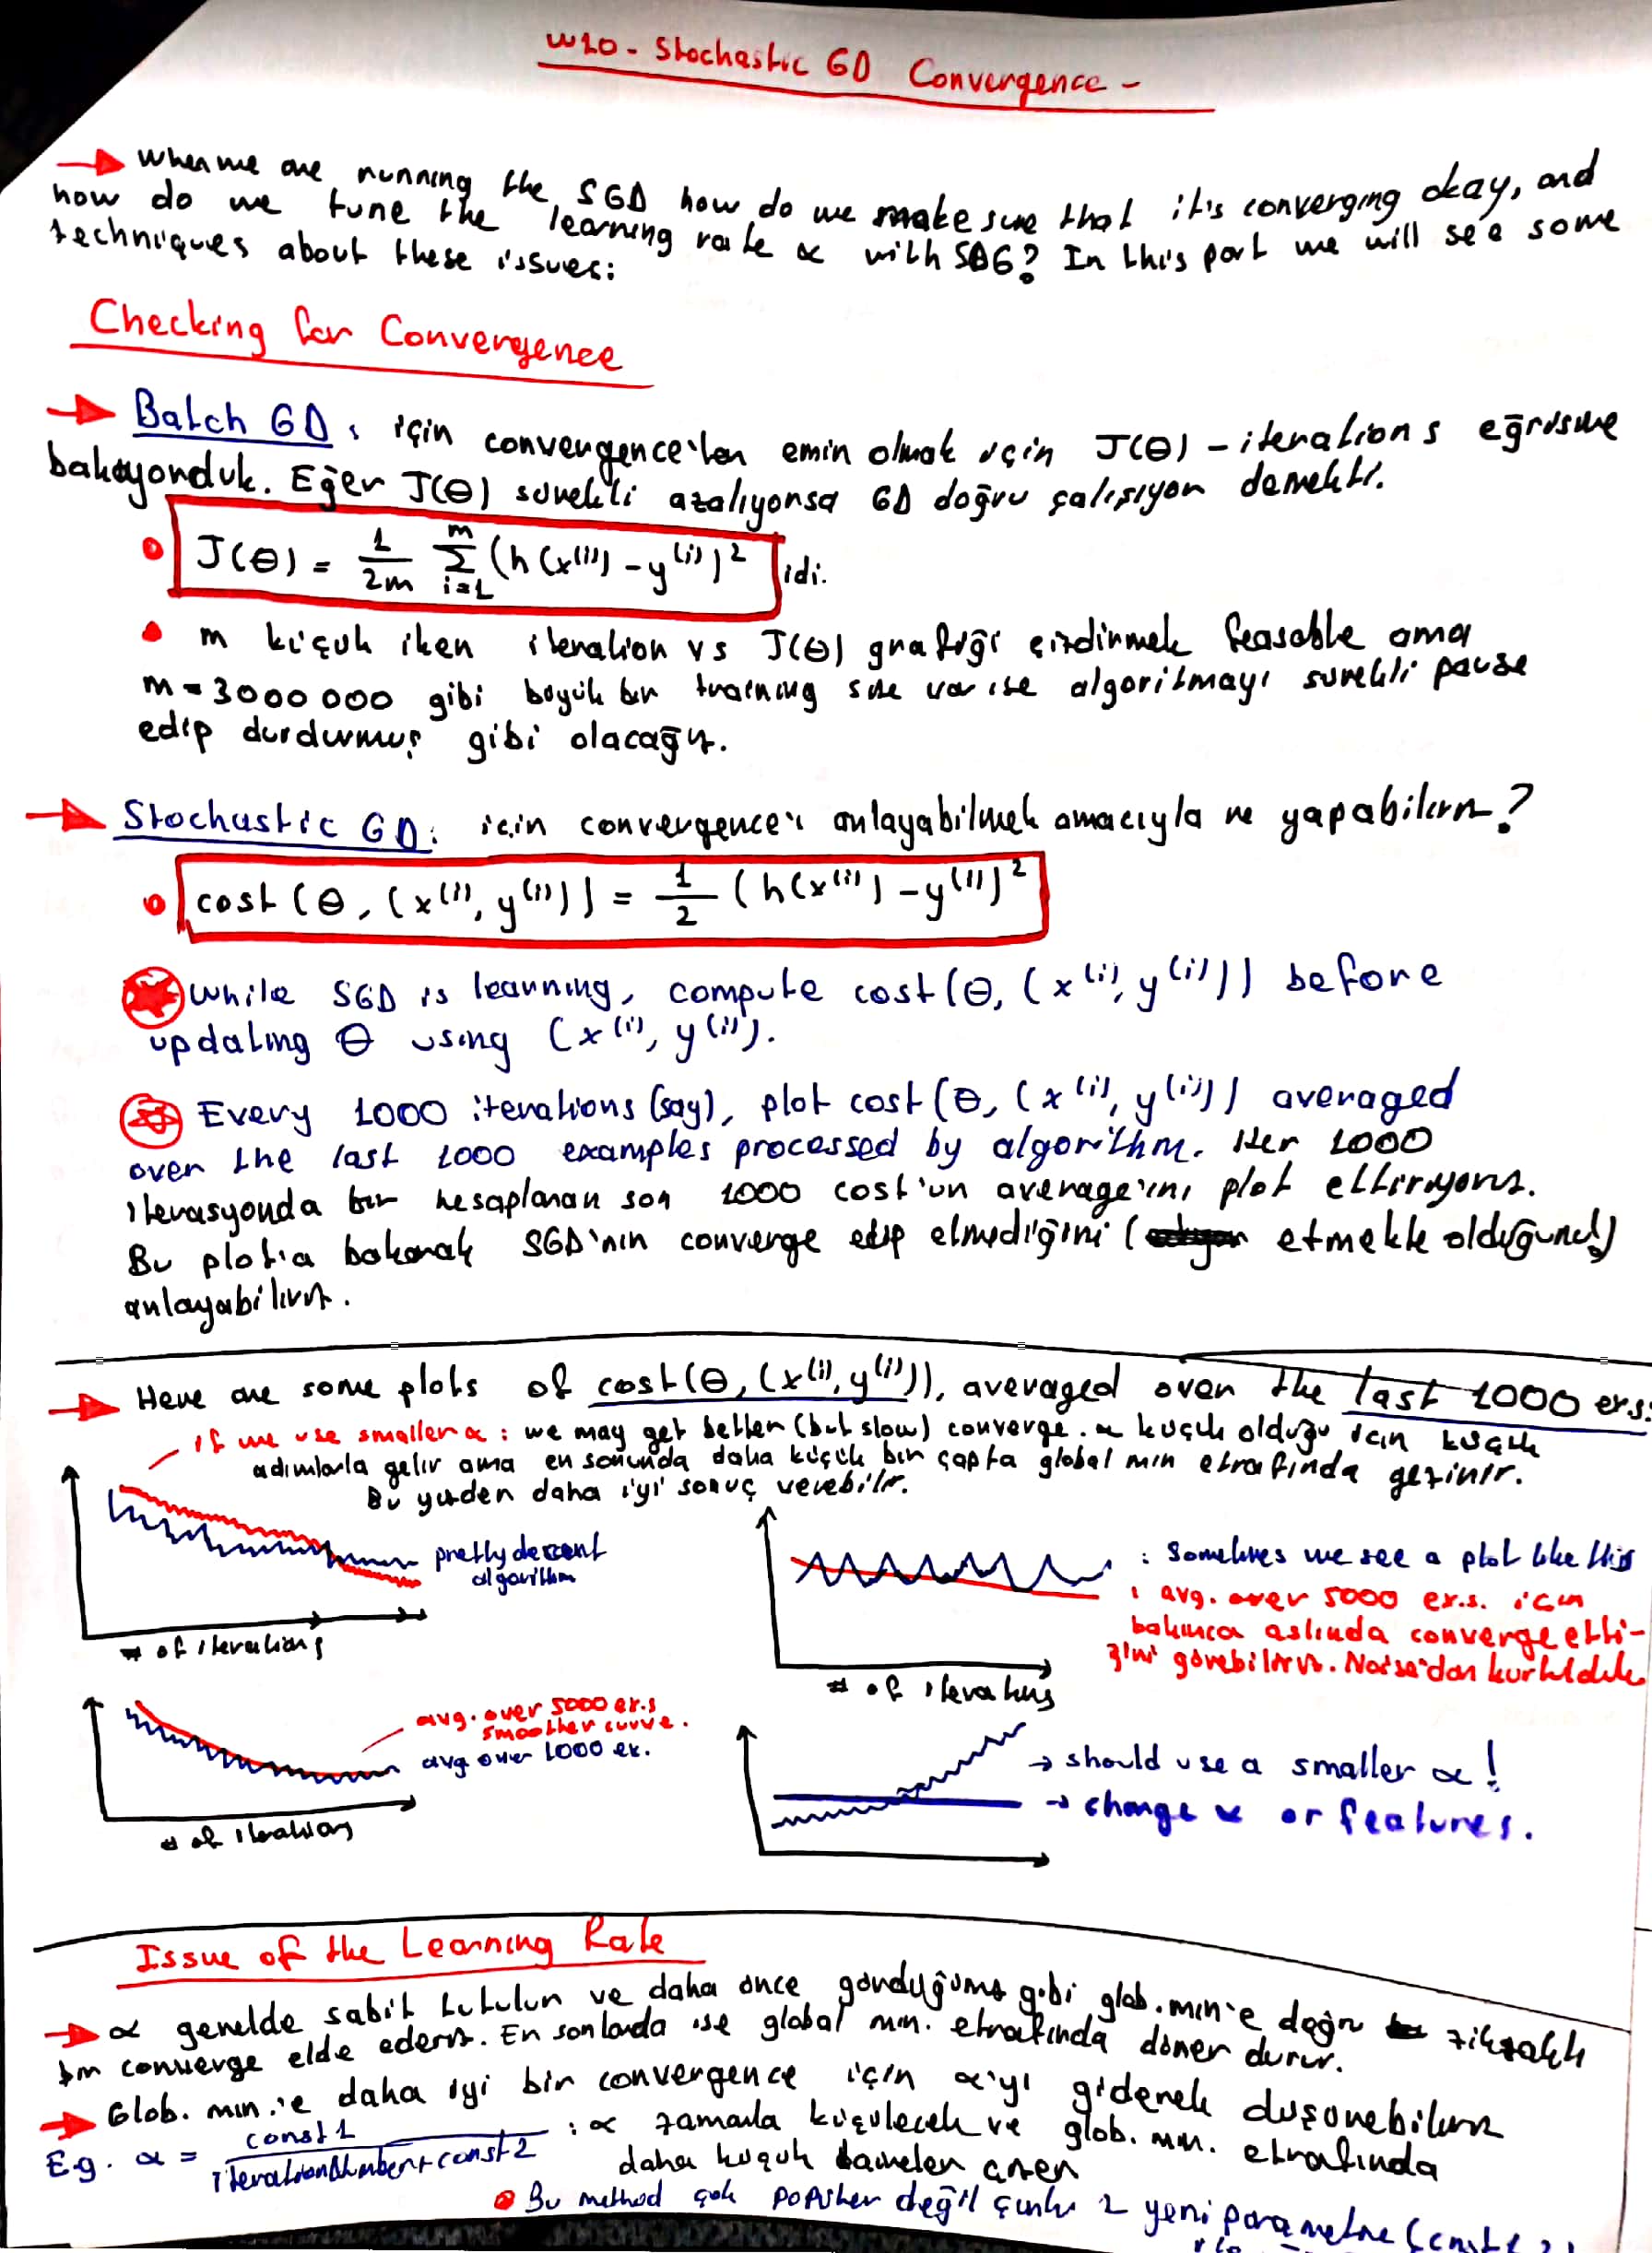 W10 - Stochastic GD Convergence -
→ When we are running the SGD how do we make sure that it's converging okay, and
how do we tune the learning rate α with SDG? In this part we will see some
techniques about these issues:
Checking for Convergence
→ Batch GD: için convergence'ten emin olmak için J(θ) - iterations eğrisine
bakıyorduk. Eğer J(θ) sürekli azalıyorsa GD doğru çalışıyor demekti.
• J(θ) = 1/2m Σ_{i=1}^{m} (h(x^(i)) - y^(i))² idi.
• m küçük iken iteration vs J(θ) grafiği çizdirmek feasable ama
m = 3000 000 gibi büyük bir training set var ise algoritmayı sürekli pause
edip durdurmuş gibi olacağız.
→ Stochastic GD: için convergence'ı anlayabilmek amacıyla ne yapabiliriz?
• cost(θ, (x^(i), y^(i))) = 1/2 (h(x^(i)) - y^(i))²
While SGD is learning, compute cost(θ, (x^(i), y^(i))) before
updating θ using (x^(i), y^(i)).
Every 1000 iterations (say), plot cost(θ, (x^(i), y^(i))) averaged
over the last 1000 examples processed by algorithm. Her 1000
iterasyonda bir hesaplanan son 1000 cost'un average'ını plot ettiriyoruz.
Bu plot'a bakarak SGD'nin converge edip etmediğini ( etmekte olduğunu)
anlayabiliriz.
→ Here are some plots of cost(θ, (x^(i), y^(i))), averaged over the last 1000 exs:
if we use smaller α : we may get better (but slow) converge. α küçük olduğu için küçük
adımlarla gelir ama en sonunda daha küçük bir çapta global min etrafında gezinir.
Bu yüzden daha iyi sonuç verebilir.
pretty decent
algorithm
# of iterations
: Sometimes we see a plot like this
: avg. over 5000 ex.s. için
bakınca aslında converge etti-
ğini görebiliriz. Noise'dan kurtulduk
# of iterations
avg. over 5000 ex.s
smoother curve.
avg over 1000 ex.
# of iterations
→ should use a smaller α!
→ change α or features.
Issue of the Learning Rate
→ α genelde sabit tutulur ve daha önce gördüğümüz gibi glob. min'e doğru zikzaklı
bir converge elde ederiz. En sonlarda ise global min. etrafında döner durur.
→ Glob. min.'e daha iyi bir convergence için α'yı giderek düşürebiliriz
E.g. α = const1 / iterationNumber + const2 : α zamanla küçülecek ve glob. min. etrafında
daha küçük daireler çizer
• Bu method çok popüler değil çünkü 2 yeni parametre (const